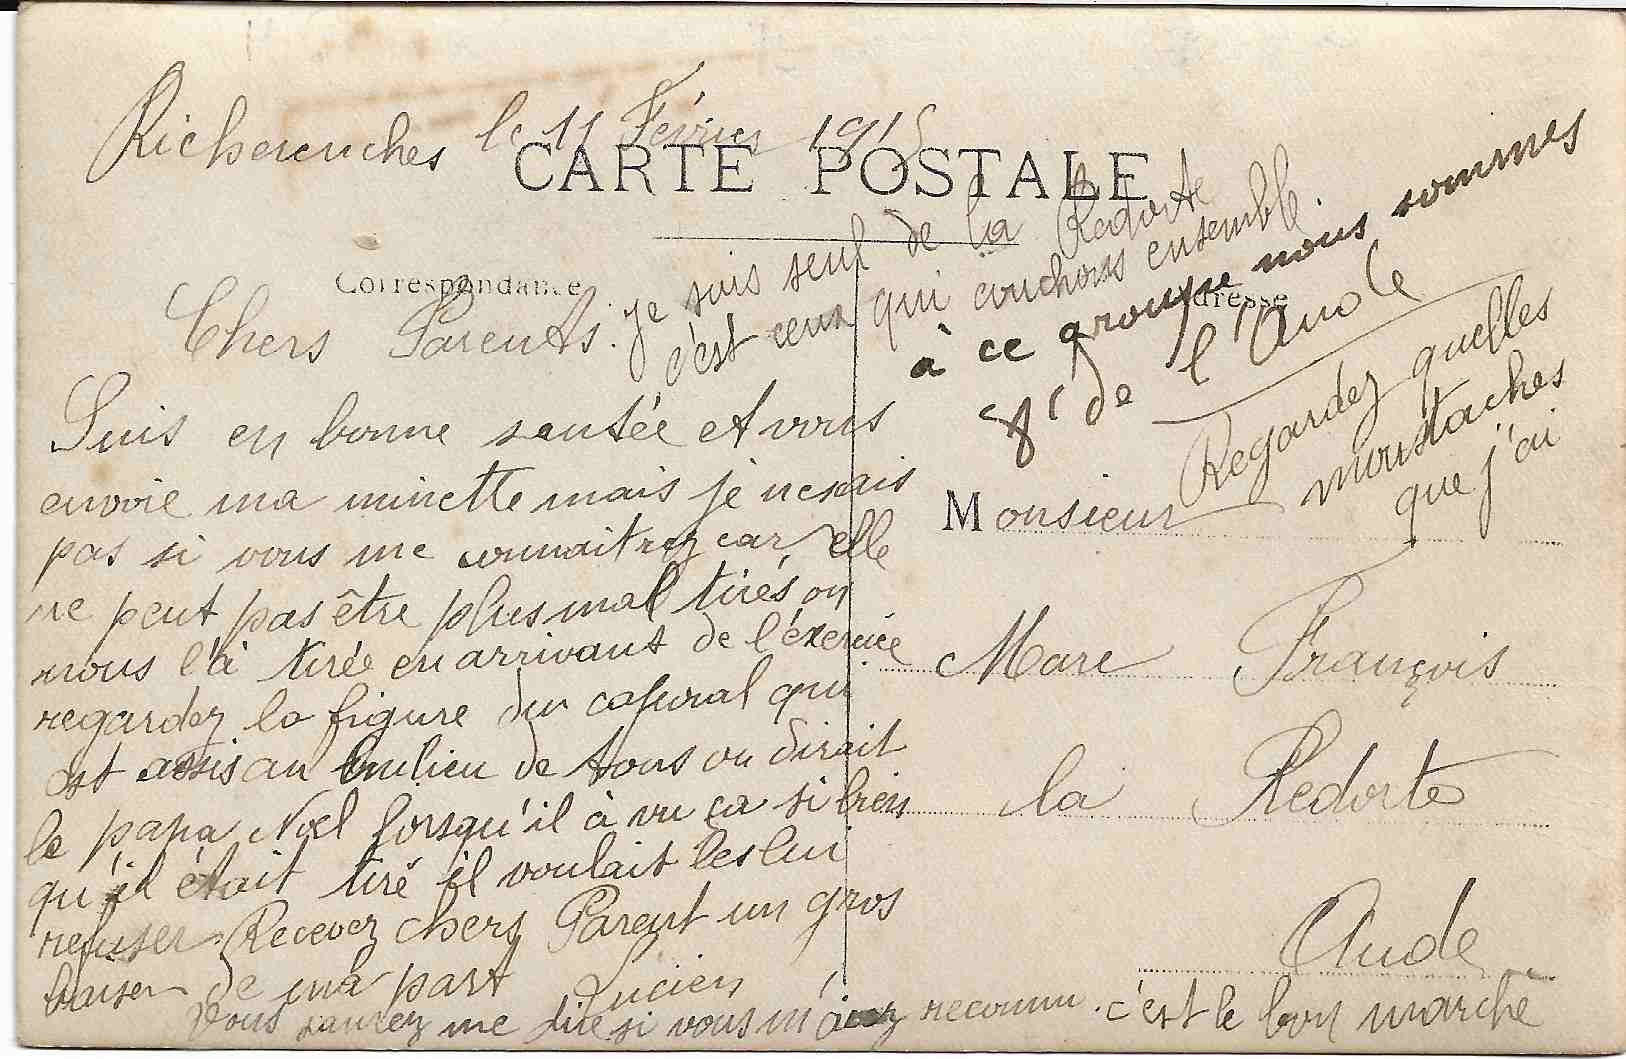 Richerenches le 11 Février 1915
CARTE POSTALE
Correspondance
Adresse
Chers Parents.
Suis en bonne santée et vous
envoie ma minette mais je ne sais
pas si vous me connaitrez car elle
ne peut pas être plus mal tirés on
nous l'à tirée en arrivant de l'éxercice
regardez la figure du caporal qui
est assis au milieu de tous on dirait
le papa Noel lorsqu'il à vu ça si bien
qu'il était tiré il voulait les lui
refuser. Recevez chers Parent un gros
baiser de ma part Lucien
Vous saurez me dire si vous m'avez reconnu. c'est le bon marché
je suis seul de la Redorte
c'est ceux qui couchons ensemble.
à ce groupe nous sommes
8 de l'Aude
Regardez quelles
moustaches
que j'ai
Monsieur
Marc François
la Redorte
Aude